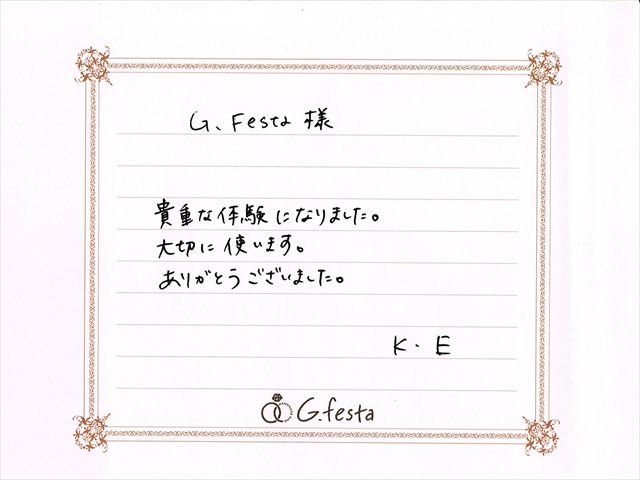 G. Festa 様
貴重な体験になりました。
大切に使います。
ありがとうございました。
K・E
G.festa